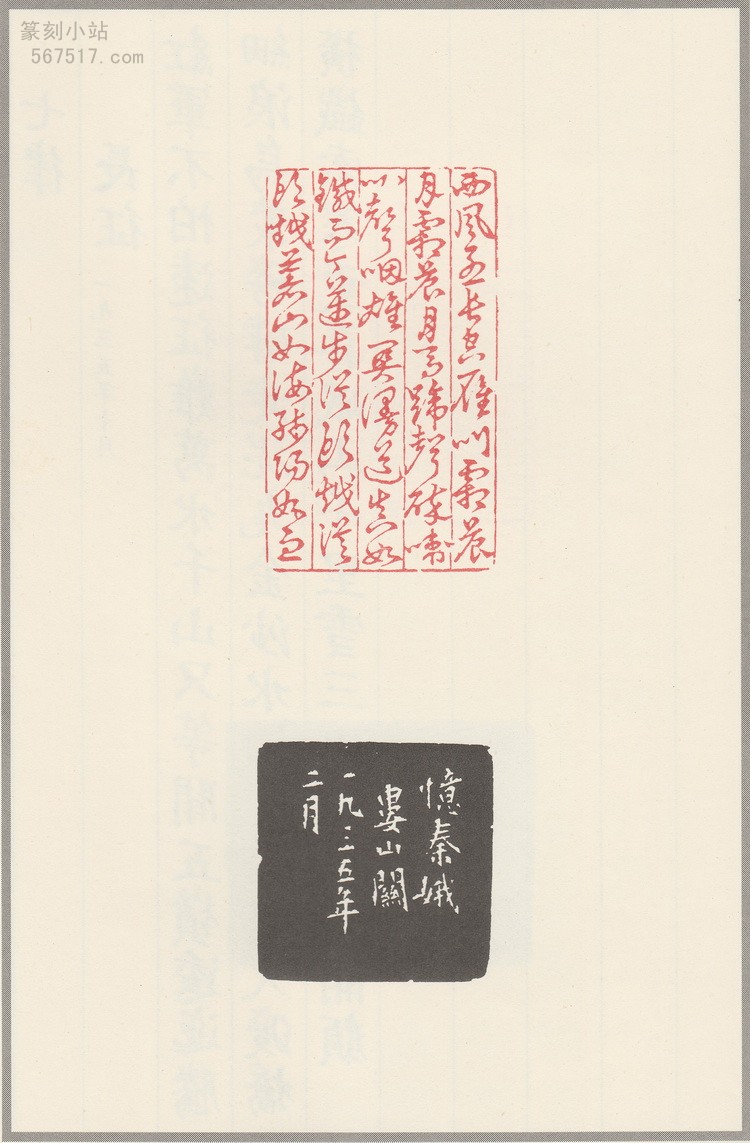 篆刻小站
567517.com
西風烈長空雁叫霜晨
月霜晨月馬蹄聲碎喇
叭聲咽雄關漫道真如
鐵而今邁步從頭越從
頭越蒼山如海殘陽如血
憶秦娥
婁山關
一九三五年
二月